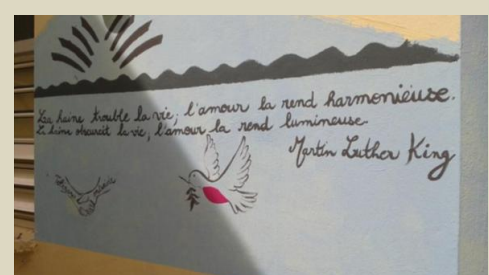 La haine trouble la vie; l'amour la rend harmonieuse.
La haine obscurcit la vie; l'amour la rend lumineuse.
Martin Luther King